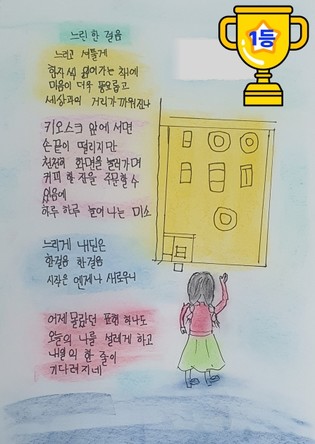 느린 한 걸음
느리고 서툴게
한자씩 읽어가는 책에
마음이 더욱 풍요롭고
세상과의 거리가 가까워진다
키오스크 앞에 서면
손끝이 떨리지만
천천히 화면을 눌러가며
커피 한 잔을 주문할 수
있음에
하루 하루 늘어나는 미소
느리게 내딛은
한걸음 한걸음
시작은 언제나 새로우니
어제 몰랐던 표현 하나도
오늘의 나를 설레게 하고
내일의 한 줄이
기다려지네
1등